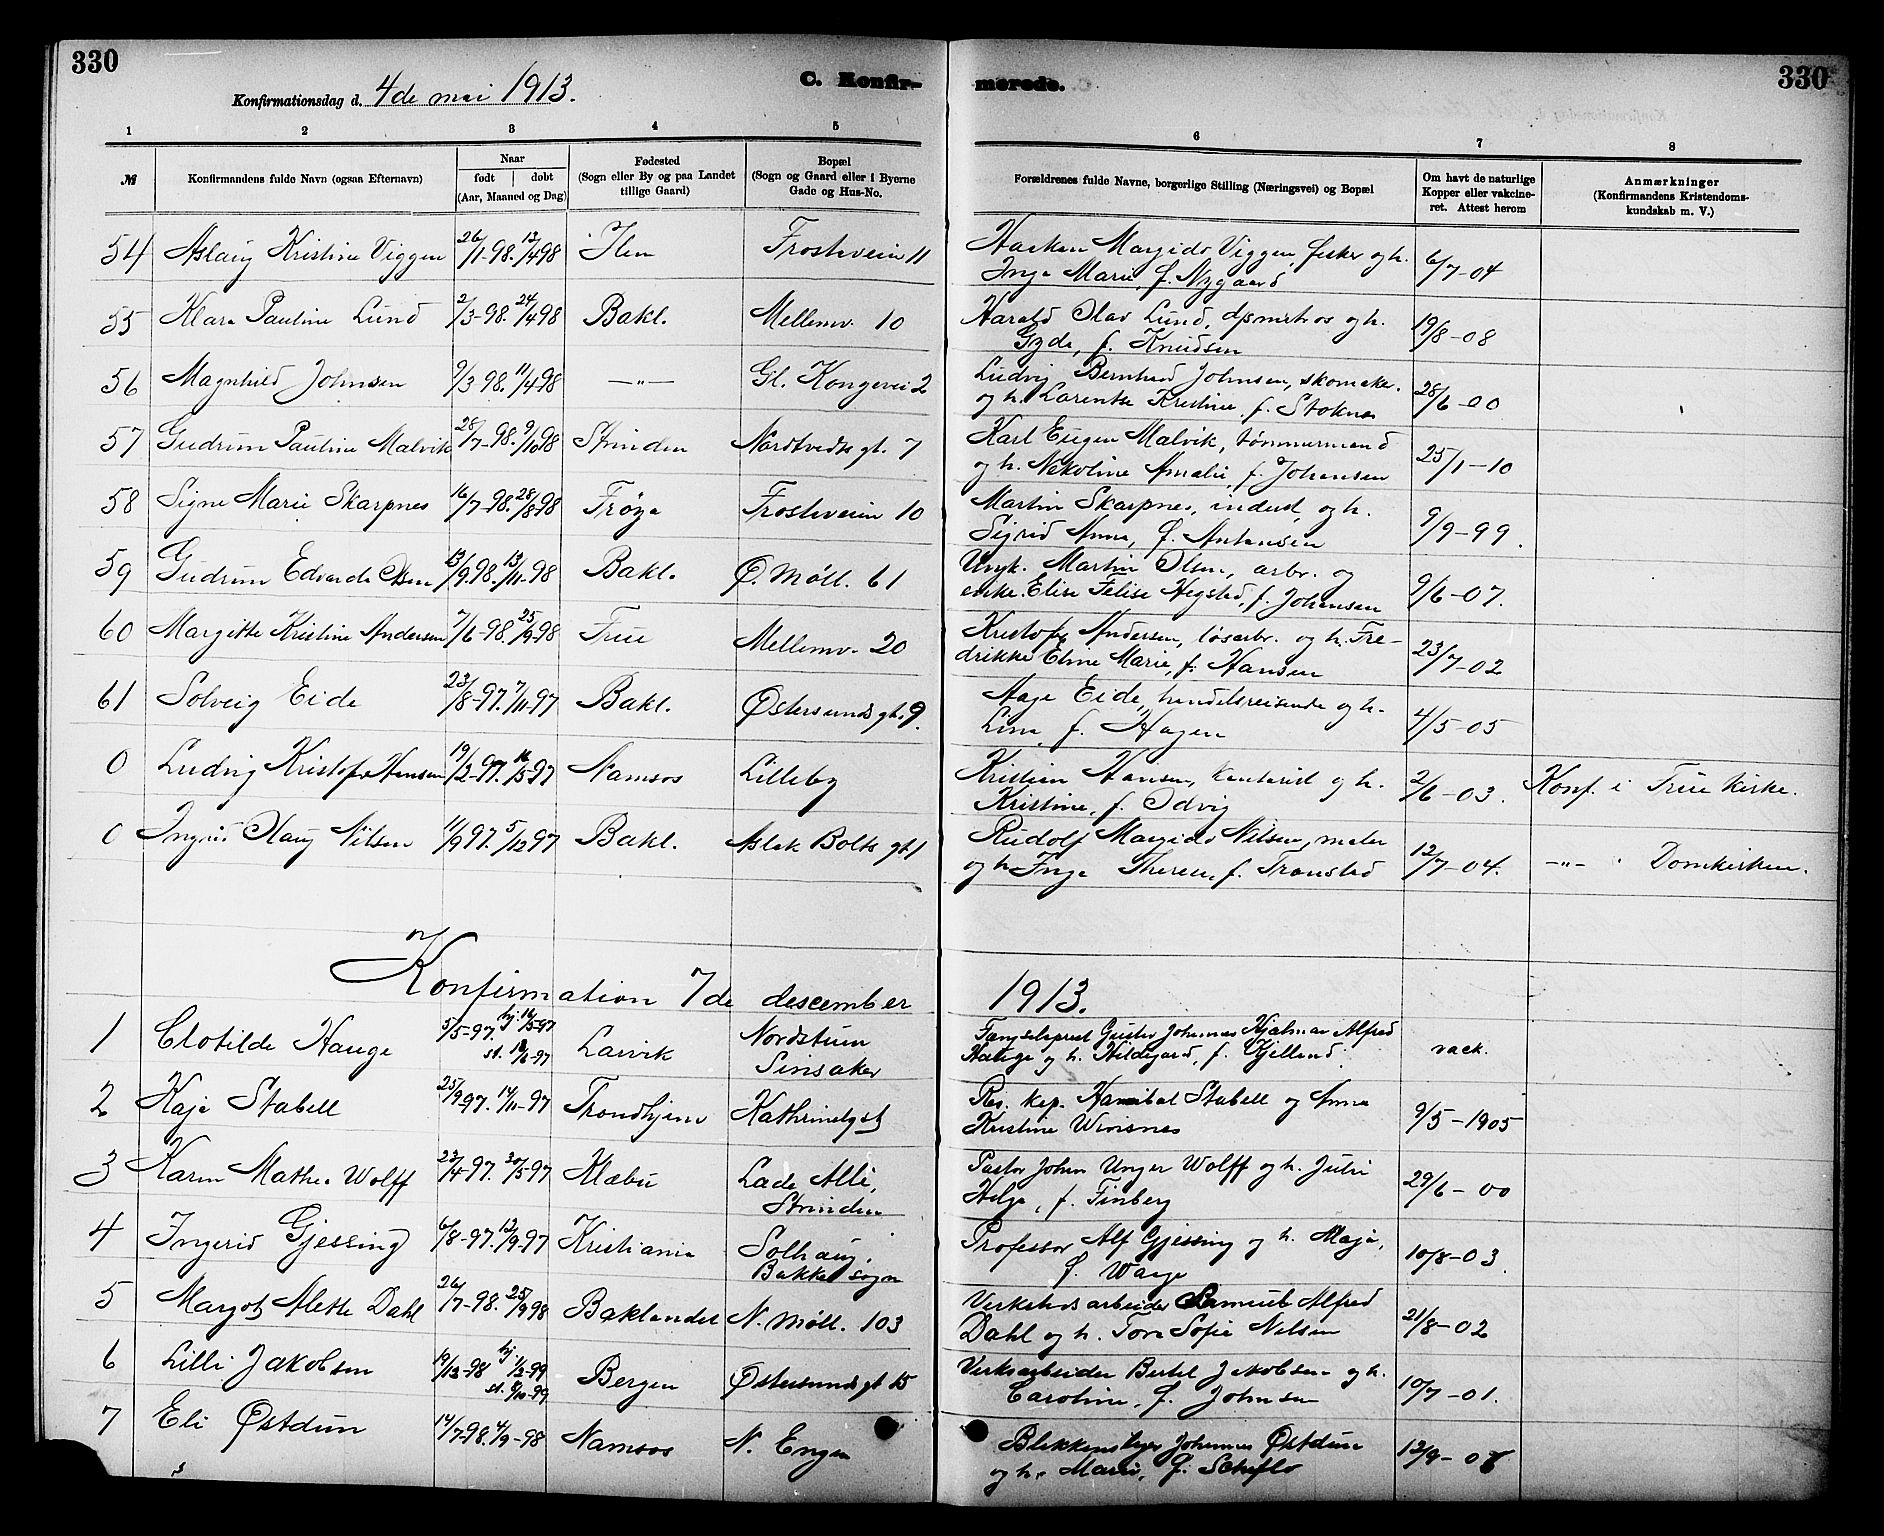 330
330
Konfirmationsdag d. 4de mai 1913.
C. Konfir-
merede.
1 2 3 4 5 6 7 8
№ Konfirmandens fulde Navn (ogsaa Efternavn) Naar født døbt (Aar, Maaned og Dag) Fødested (Sogn eller By og paa Landet tillige Gaard) Bopæl (Sogn og Gaard eller i Byerne Gade og Hus-No. Forældrenes fulde Navne, borgerlige Stilling (Næringsvei) og Bopæl Om havt de naturlige Kopper eller vakcineret. Attest herom Anmærkninger (Konfirmandens Kristendomskundskab m. V.)
54 Aslaug Kristine Viggen 26/1-98. 13/4 98 Ilen Frostaveien 11 Haakon Margido Viggen, fisker og h.
Inga Marie, f. Nygaard 6/7-04
55 Klara Pauline Lund 2/3-98. 24/4 98 Bakl. Mellemv. 10 Harald Olav Lund, og h.
Gyda, f. Knudsen 19/8-08
56 Magnhild Johnsen 9/3-98. 11/4-98 —„— Gl. Kongevei 2 Ludvig Bernhard Johnsen, skomaker
og h. Larentse Kristine f. Stoknes 28/6-00
57 Gudrun Pauline Malvik 28/7-98. 9/10 98 Strinden Nordtvedts gt. 7 Karl Eugen Malvik, tømmermand
og h. Nekoline Amalie, f. Johansen 25/1-10
58 Signe Marie Skarpnes 16/7-98. 28/8-98 Frøya Frostaveien 10 Martin Skarpnes, og h.
Sigrid Anna, f. Antonsen 9/9-99.
59 Gudrun Edvarda Olsen 13/9-98. 13/11-98 Bakl. Ø. Møll. 61 Ungk. Martin Olsen, arb. og
enke Elise Felise Hegstad, f. Johansen 9/6-07.
60 Margitte Kristine Andersen 7/6-98. 25/9-98 Frue Mellemv. 20 Kristofer Andersen, løsarb. og h. Fre-
drikke Eline Marie, f. Hansen 23/7-02
61 Solveig Eide 23/8-97. 7/11-97 Bakl. Østersunds gt. 9. Aage Eide, handelsreisende og h.
Lina, f. Hagen 4/5-05
0 Ludvig Kristofer Hansen 19/2-97. 16/5-97 Namsos Lilleby Kristian Hansen, kontorist og h.
Kristine, f. Odvig 2/6-03. Konf. i Frue kirke.
0 Ingrid Olaug Nilsen 11/9 97. 5/12 97 Bakl. Aslak Bolts gt. 1 Rudolf Margido Nilsen, maler
og h. Inga Therese, f. Transtad 12/7-04. —„— Domkirken.
Konfirmation 7de descember 1913.
1 Clotilde Hauge 5/5-97. hj. 16/5-97
st. 18/6-97 Larvik Nordstuen
Sinsaker Fængselsprest Gustav Johannes Hjalmar Alfred
Hauge og h. Hildegard, f. Kjelland. vack.
2 Kaja Stabell 25/9-97. 14/11-97 Trondhjem Kathrinelyst Res. kap. Hannibal Stabell og Anna
Kristine Wiisnes 9/5-1905
3 Karin Mathea Wolff 23/4-97. 30/5-97 Klæbu Lade Allé,
Strinden Pastor Johan Unger Wolff og h. Julie
Helga, f. Finberg 29/6-00
4 Ingerid Gjessing 6/8-97. 12/9-97 Kristiania Solhaug,
Bakke sogn Professor Alf Gjessing og h. Maja,
f. Waage 10/8-03.
5 Margot Alette Dahl 26/7-98. 25/9 98 Baklandet N. Møll. 103 Verkstedsarbeider Samuel Alfred
Dahl og h. Tora Sofie Nilsen 21/8-02
6 Lilli Jakobsen 19/12-98 hj. 1/2-99
st. 8/10-99 Bergen Østersunds gt 15 Verksarbeider Bertel Jakobsen og h.
Caroline, f. Johnsen 10/7-01.
7 Eli Østdun 14/7-98. 4/9-98 Namsos N. Enga Blikkenslager Johannes Østdun
og h. Marie, f. Scheflo